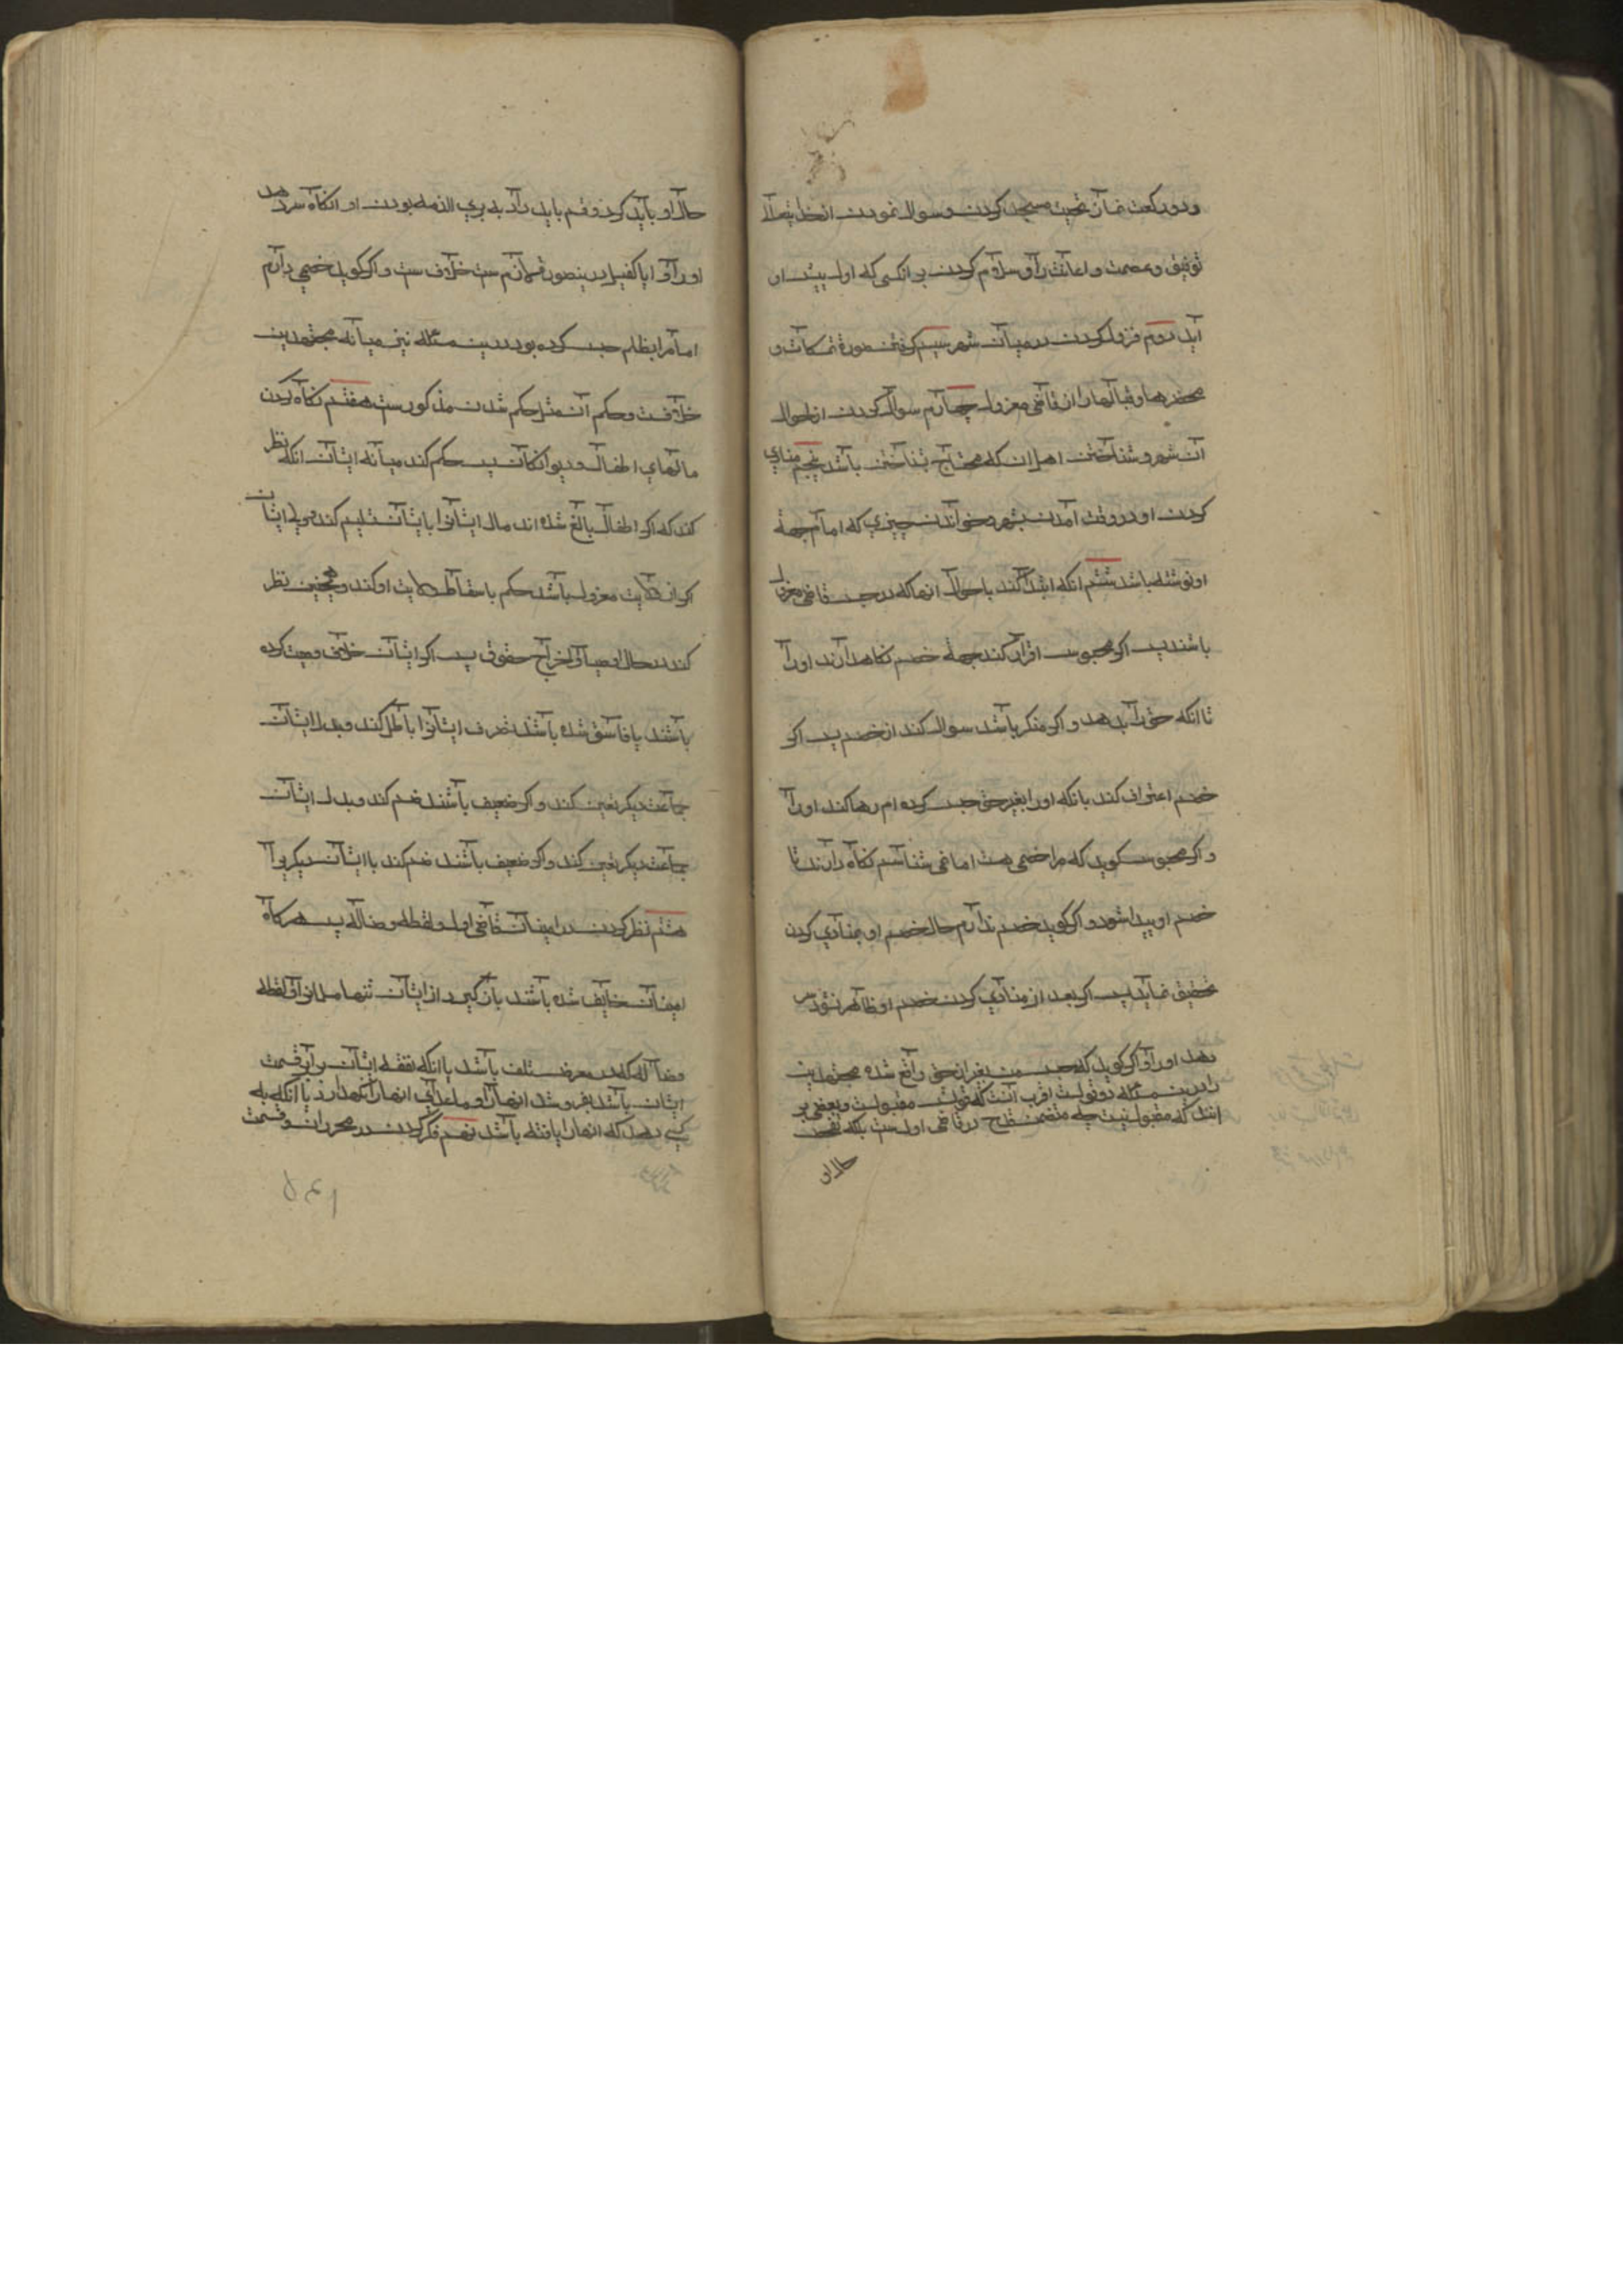 و دو رکعت نماز تحیت مسجد کردن و سوال نمودن از خدایتعالا
توفیق و عصمت و اعانت را و سلام کردن بر انکسی که اول پیش او
آید دویم نزول کردن در میان شهر سیم کرفتن صورة تمسکات و
محضرها و قبالها را از قاضی معزول چهارم سوال کردن از احوال
آن شهر و شناختن اهل ان که محتاج بشناختن باشد پنجم منادي
کردن او در وقت آمدن بشهر و خواندن چیزي که امام بجهة
او نوشته باشد ششم انکه ابتدا کند باحوال انها که در حبس قاضی معزول
باشند پس اکر محبوس اقرار کند بجهة خصم نکاهدارند اورا
تا انکه حق را بدهد و اکر منکر باشد سوال کند از خصم پس اکر
خصم اعتراف کند بانکه اورا بغیر حق حبس کرده ام رها کند اورا
و اکر محبوس کوید که مرا خصمی هست اما نمی شناسم نکاه دارند تا
خصم او پیدا شود و اکر کوید خصم ندارم حال خصم او بمنادي کردن
تحقیق نماید پس اکر بعد از منادي کردن خصم او ظاهر نشود سر
دهد اورا و اکر کوید که حبس من بغیر از حق واقع شده مجتهدین
را درین مسئله دو قولست اقرب آنست که قولش مقبولست و بعضی بر
انند که مقبول نیست چه متضمن قدح در قاضی اولست بلکه تفحص
حال او
حال او باید کرد و قسم باید داد به بري الذمه بودن او انکاه سر دهد
اورا و ایا کفیل درینصورة لازم ست خلاف ست و اکر کوید خصمي دارم
اما مرا بظلم حبس کرده بود درین مسئله نیز میانه مجتهدین
خلافست و حکم آن مثل حکم شدن مذکورست هفتم نکاه کردن
مالهاي اطفال و دیوانکان پس حکم کند میانه ایشان انکه نظر
کند که اکر اطفال بالغ شده اند مال ایشانرا بایشان تسلیم کند و ولي ایشان
اکر از ولایت معزول باشد حکم باسقاط ولایت او کند و همچنین نظر
کند در حال اوصیا و اخراج حقوق پس اکر ایشان خلاف وصیت کرده
باشند یا فاسق شده باشند تصرف ایشانرا باطل کند و بدل ایشان
جماعت دیکر تعین کند و اکر ضعیف باشند ضم کند و بدل ایشان
جماعت دیکر تعین کند و اکر ضعیف باشند ضم کند با ایشان دیکریرا
هشتم نظر کردن در امینان قاضی اول و لقطه و ضاله پس هرکاه
امینان خایف شده باشند باز کیرد از ایشان تنها مال را و لقطه
و ضاله که در معرض تلف باشد یا انکه نفقه ایشان برابر قیمت
ایشان باشد بفروشد انهارا و ماعداي انهارا نکهدارد یا انکه به
کسي دهد که انهارا یافته باشد نهم فکر کردن در محرران و قسمت